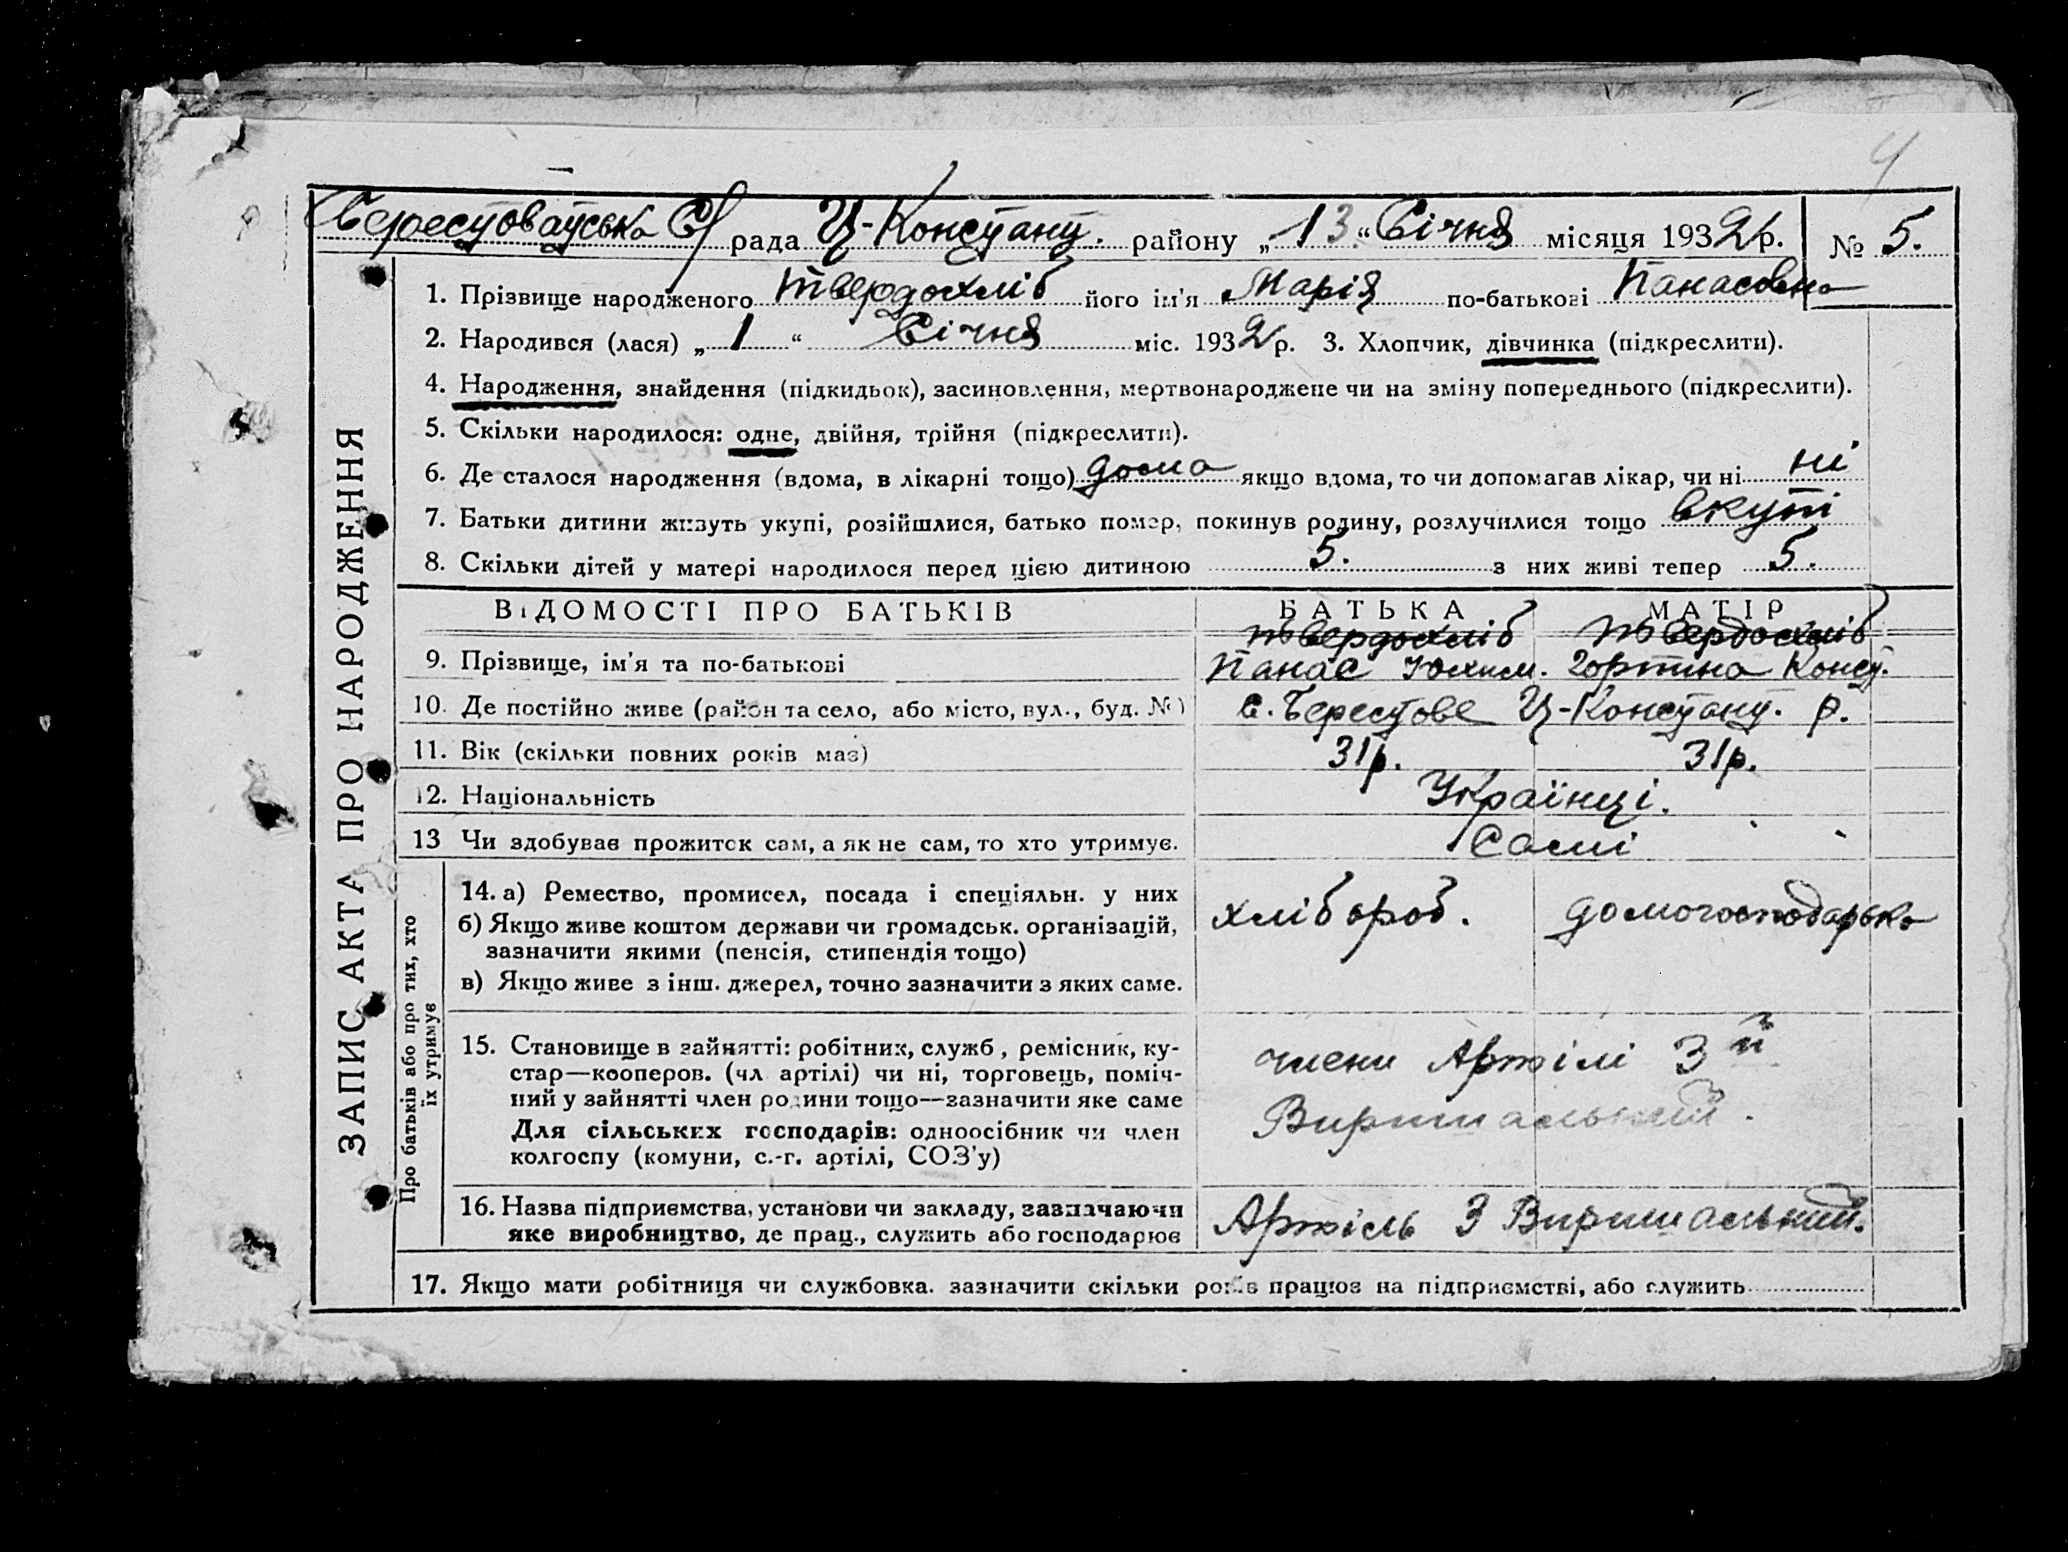 4
Берестоватська С/ рада Ц-Констант. району „13“ Січня місяця 1932 р. № 5.
1. Прізвище народженого Твердохліб його ім'я Марія по-батькові Панасовна
2. Народився (лася) „1“ Січня міс. 1932 р. 3. Хлопчик, дівчинка (підкреслити).
4. Народження, знайдення (підкидьок), засиновлення, мертвонароджене чи на зміну попереднього (підкреслити).
5. Скільки народилося: одне, двійня, трійня (підкреслити).
6. Де сталося народження (вдома, в лікарні тощо) дома якщо вдома, то чи допомагав лікар, чи ні ні
7. Батьки дитини живуть укупі, розійшлися, батько помер, покинув родину, розлучилися тощо вкупі
8. Скільки дітей у матері народилося перед цією дитиною 5. з них живі тепер 5.
ВІДОМОСТІ ПРО БАТЬКІВ БАТЬКА МАТІР
Твердохліб Твердохліб
9. Прізвище, ім'я та по-батькові Панас Юхим. Горпина Конст.
10. Де постійно живе (район та село, або місто, вул., буд. №) с. Берестове Ц-Констант. р.
11. Вік (скільки повних років має) 31р. 31р.
12. Національність Українці.
13 Чи здобуває прожиток сам, а як не сам, то хто утримує. Самі
14. а) Ремество, промисел, посада і спеціяльн. у них хлібороб. домогосподарька
б) Якщо живе коштом держави чи громадськ. організацій,
зазначити якими (пенсія, стипендія тощо)
в) Якщо живе з інш. джерел, точно зазначити з яких саме.
15. Становище в зайнятті: робітник, служб, ремісник, ку-
стар—кооперов. (чл. артілі) чи ні, торговець, поміч-
ний у зайнятті член родини тощо—зазначити яке саме
Для сільських господарів: одноосібник чи член
колгоспу (комуни, с.-г. артілі, СОЗ'у)
члени Артілі 3й
Вирішальний.
16. Назва підприємства, установи чи закладу, зазначаючи
яке виробництво, де прац., служить або господарює
Артіль 3 Вирішальний.
17. Якщо мати робітниця чи службовка. зазначити скільки років працює на підприємстві, або служить
ЗАПИС АКТА ПРО НАРОДЖЕННЯ
Про батьків або про тих, хто
їх утримує